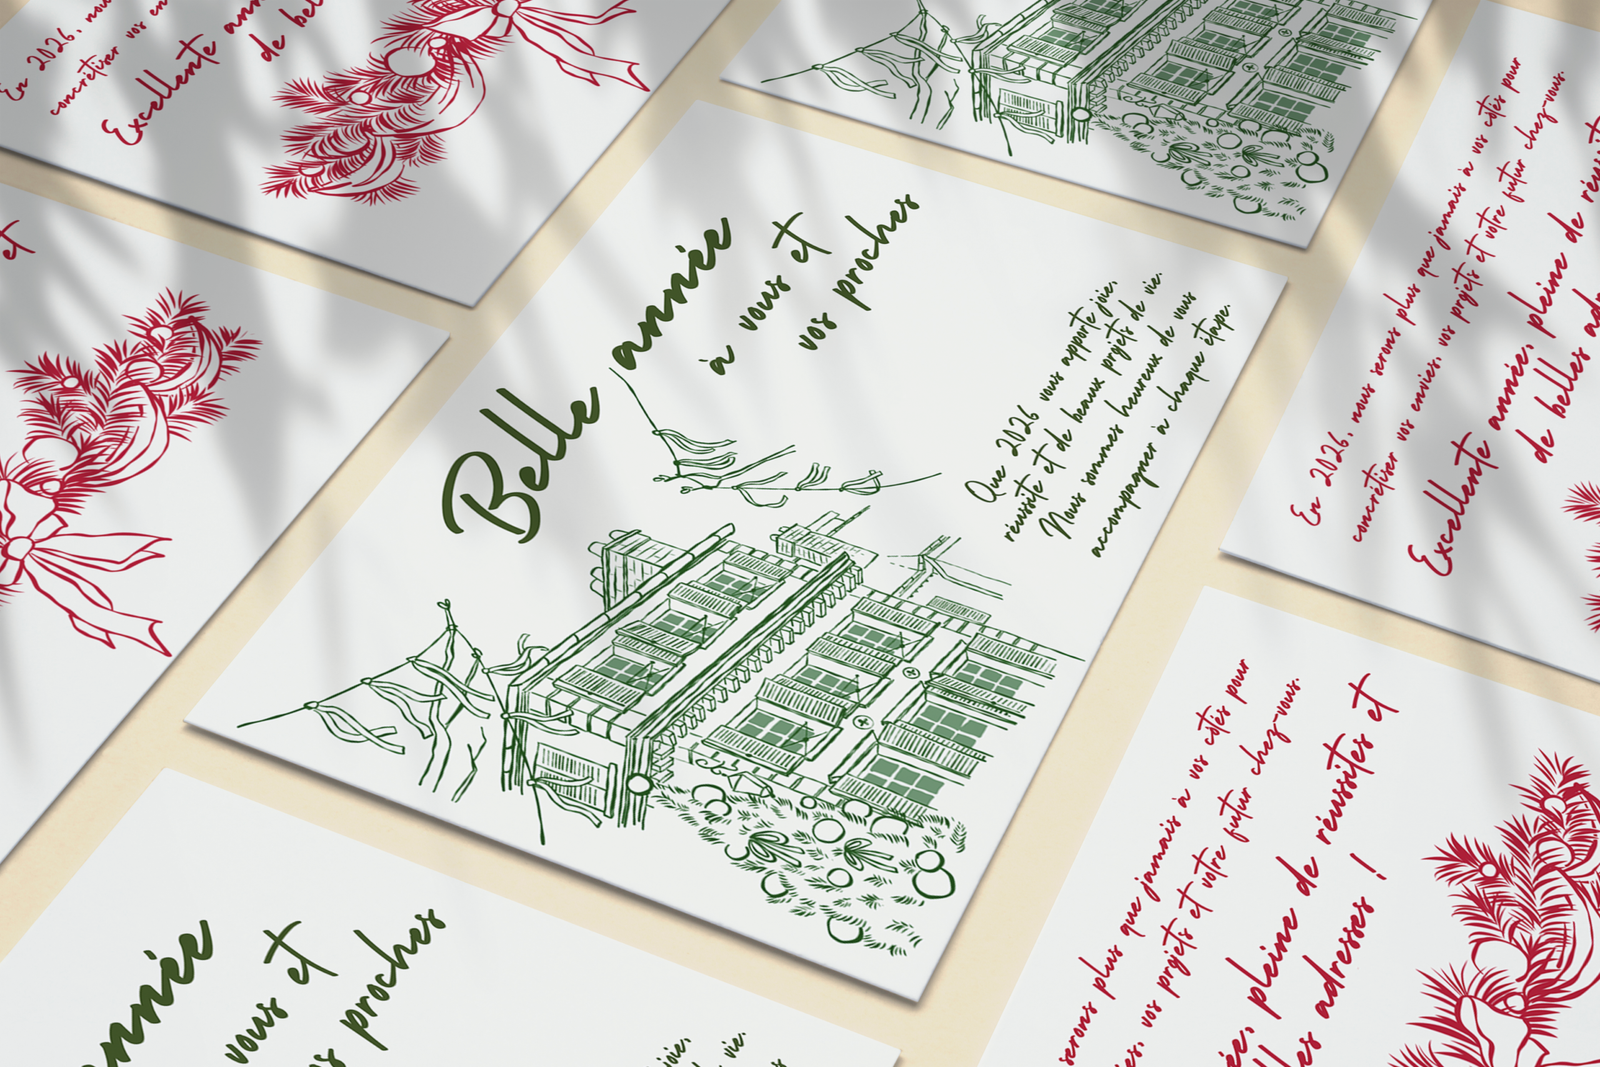 En 2026, nous
concrétiser vos en
Excellente ann
de bel
et
Belle année
à vous et
vos proches
Que 2026 vous apporte joie,
réussite et de beaux projets de vie.
Nous sommes heureux de vous
accompagner à chaque étape.
En 2026, nous serons plus que jamais à vos côtés pour
concrétiser vos envies, vos projets et votre futur chez-vous.
Excellente année, pleine de réussit
de belles adr
serons plus que jamais à vos côtés pour
es, vos projets et votre futur chez-vous.
ée, pleine de réussites et
lles adresses !
année
vous et
os proches
joie,
de vie.